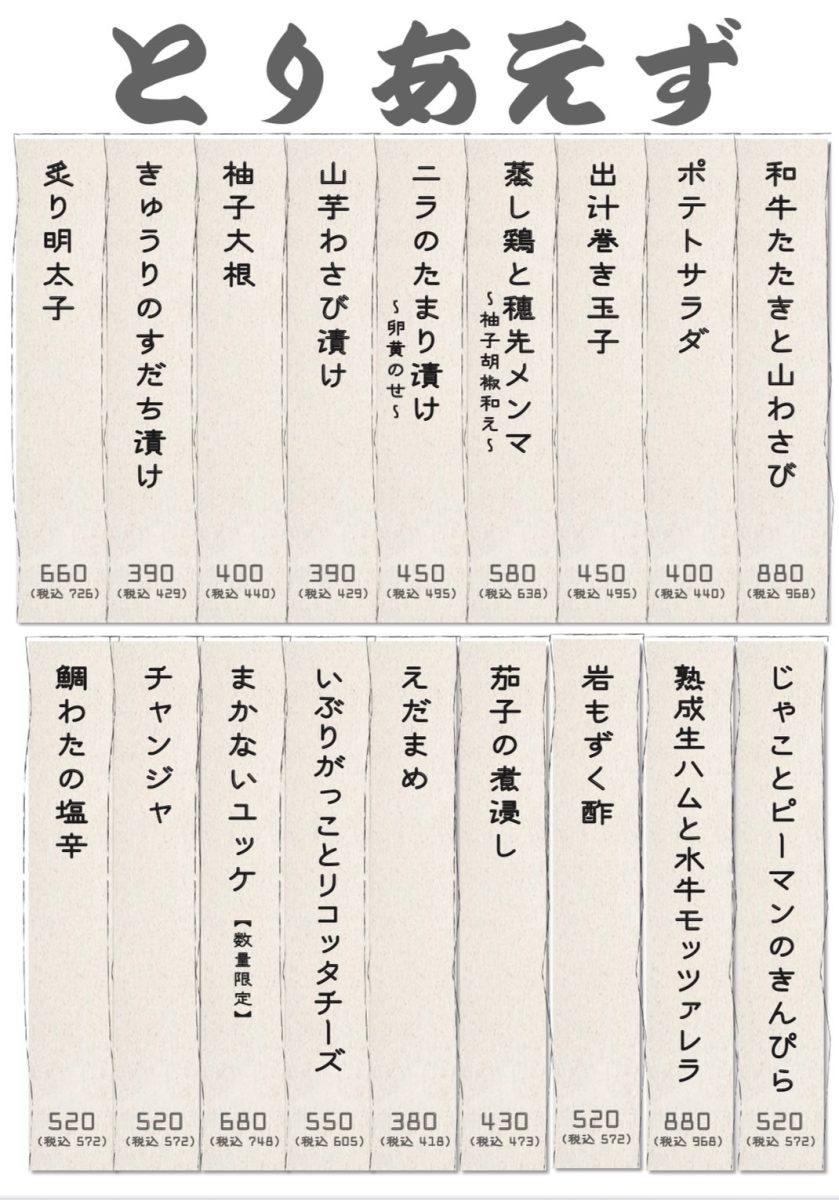 とりあえず
和牛たたきと山わさび
880
(税込 968)
ポテトサラダ
400
(税込 440)
出汁巻き玉子
450
(税込 495)
蒸し鶏と穂先メンマ
~柚子胡椒和え~
580
(税込 638)
ニラのたまり漬け
~卵黄のせ~
450
(税込 495)
山芋わさび漬け
390
(税込 429)
柚子大根
400
(税込 440)
きゅうりのすだち漬け
390
(税込 429)
炙り明太子
660
(税込 726)
じゃことピーマンのきんぴら
520
(税込 572)
熟成生ハムと水牛モッツァレラ
880
(税込 968)
岩もずく酢
520
(税込 572)
茄子の煮浸し
430
(税込 473)
えだまめ
380
(税込 418)
いぶりがっことリコッタチーズ
550
(税込 605)
まかないユッケ【数量限定】
680
(税込 748)
チャンジャ
520
(税込 572)
鯛わたの塩辛
520
(税込 572)